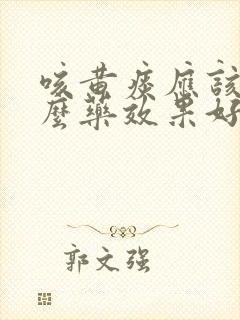 咳黄痰應該
麼藥效果好
郭文强